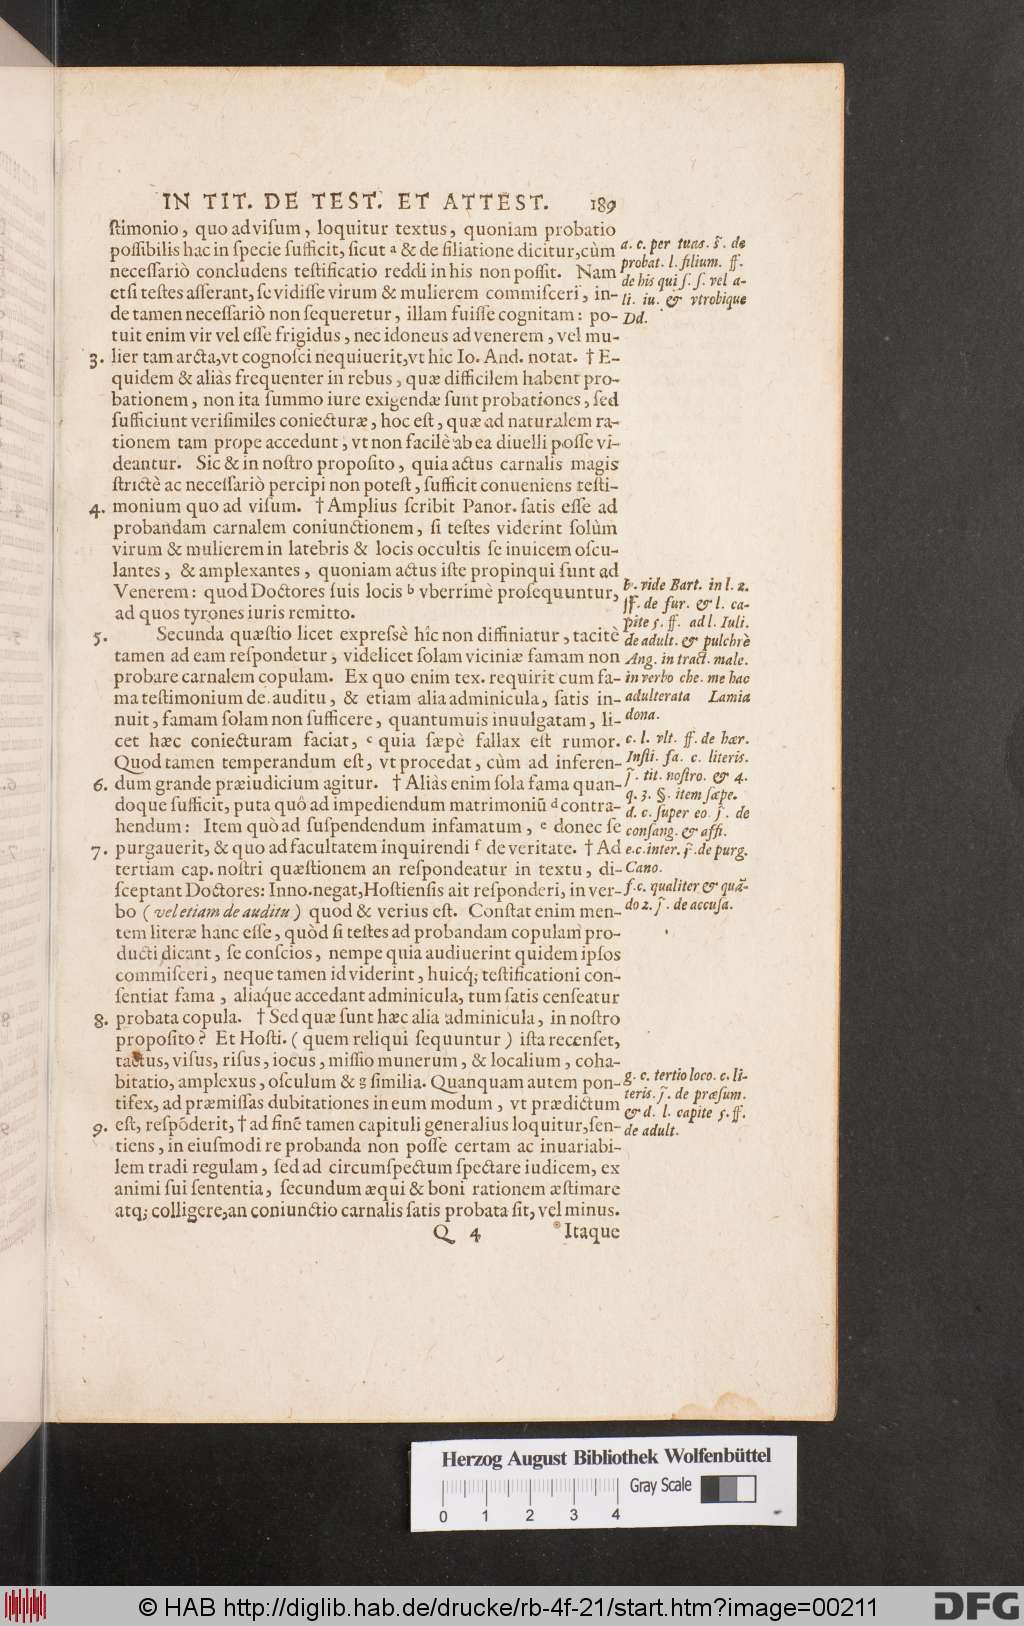 IN TIT. DE TEST. ET ATTEST. 189
ſtimonio, quo ad viſum, loquitur textus, quoniam probatio
poſſibilis hac in ſpecie ſufficit, ſicut ᵃ & de filiatione dicitur, cùm
neceſſariò concludens teſtificatio reddi in his non poſſit. Nam
etſi teſtes aſſerant, ſe vidiſſe virum & mulierem commiſceri, in-
de tamen neceſſariò non ſequeretur, illam fuiſſe cognitam: po-
tuit enim vir vel eſſe frigidus, nec idoneus ad venerem, vel mu-
3. lier tam arcta, vt cognoſci nequiuerit, vt hîc Io. And. notat. † E-
quidem & aliàs frequenter in rebus, quæ difficilem habent pro-
bationem, non ita ſummo iure exigendæ ſunt probationes, ſed
ſufficiunt veriſimiles coniecturæ, hoc eſt, quæ ad naturalem ra-
tionem tam prope accedunt, vt non facilè ab ea diuelli poſſe vi-
deantur. Sic & in noſtro propoſito, quia actus carnalis magis
ſtrictè ac neceſſariò percipi non poteſt, ſufficit conueniens teſti-
4. monium quo ad viſum. † Amplius ſcribit Panor. ſatis eſſe ad
probandam carnalem coniunctionem, ſi teſtes viderint ſolùm
virum & mulierem in latebris & locis occultis ſe inuicem oſcu-
lantes, & amplexantes, quoniam actus iſte propinqui ſunt ad
Venerem: quod Doctores ſuis locis ᵇ vberrimè proſequuntur,
ad quos tyrones iuris remitto.
5. Secunda quæſtio licet expreſsè hîc non diffiniatur, tacitè
tamen ad eam reſpondetur, videlicet ſolam viciniæ famam non
probare carnalem copulam. Ex quo enim tex. requirit cum fa-
ma teſtimonium de auditu, & etiam alia adminicula, ſatis in-
nuit, famam ſolam non ſufficere, quantumuis inuulgatam, li-
cet hæc coniecturam faciat, ᶜ quia ſæpè fallax eſt rumor.
Quod tamen temperandum eſt, vt procedat, cùm ad inferen-
6. dum grande præiudicium agitur. † Aliàs enim ſola fama quan-
doque ſufficit, puta quô ad impediendum matrimoniū ᵈ contra-
hendum: Item quò ad ſuſpendendum infamatum, ᵉ donec ſe
7. purgauerit, & quo ad facultatem inquirendi ᶠ de veritate. † Ad
tertiam cap. noſtri quæſtionem an reſpondeatur in textu, di-
ſceptant Doctores: Inno. negat, Hoſtienſis ait reſponderi, in ver-
bo (vel etiam de auditu) quod & verius eſt. Conſtat enim men-
tem literæ hanc eſſe, quòd ſi teſtes ad probandam copulam pro-
ducti dicant, ſe conſcios, nempe quia audiuerint quidem ipſos
commiſceri, neque tamen id viderint, huicq́; teſtificationi con-
ſentiat fama, aliaq́ue accedant adminicula, tum ſatis cenſeatur
8. probata copula. † Sed quæ ſunt hæc alia adminicula, in noſtro
propoſito? Et Hoſti. (quem reliqui ſequuntur) iſta recenſet,
tactus, viſus, riſus, iocus, miſſio munerum, & localium, coha-
bitatio, amplexus, oſculum & ᵍ ſimilia. Quanquam autem pon-
tifex, ad præmiſſas dubitationes in eum modum, vt prædictum
9. eſt, reſpōderit, † ad finē tamen capituli generalius loquitur, ſen-
tiens, in eiuſmodi re probanda non poſſe certam ac inuariabi-
lem tradi regulam, ſed ad circumſpectum ſpectare iudicem, ex
animi ſui ſententia, ſecundum æqui & boni rationem æſtimare
atq; colligere, an coniunctio carnalis ſatis probata ſit, vel minus.
Q 4 Itaque
a. c. per tuas. ſ̃. de
probat. l. filium. ff.
de his qui ſ. ſ. vel a-
li. iu. & vtrobique
Dd.
b. vide Bart. in l. 2.
ff. de fur. & l. ca-
pite 5. ff. ad l. Iuli.
de adult. & pulchrè
Ang. in tract. male.
in verbo che. me hac
adulterata Lamia
dona.
c. l. vlt. ff. de hær.
Inſti. fa. c. literis.
ſ̃. tit. noſtro. & 4.
q. 3. §. item ſæpe.
d. c. ſuper eo ſ̃. de
conſang. & affi.
e. c. inter. ſ̃. de purg.
Cano.
f. c. qualiter & quā-
do 2. ſ̃. de accuſa.
g. c. tertio loco. c. li-
teris. ſ̃. de præſum.
& d. l. capite 5. ff.
de adult.
Herzog August Bibliothek Wolfenbüttel
Gray Scale
0 1 2 3 4
© HAB http://diglib.hab.de/drucke/rb-4f-21/start.htm?image=00211
DFG